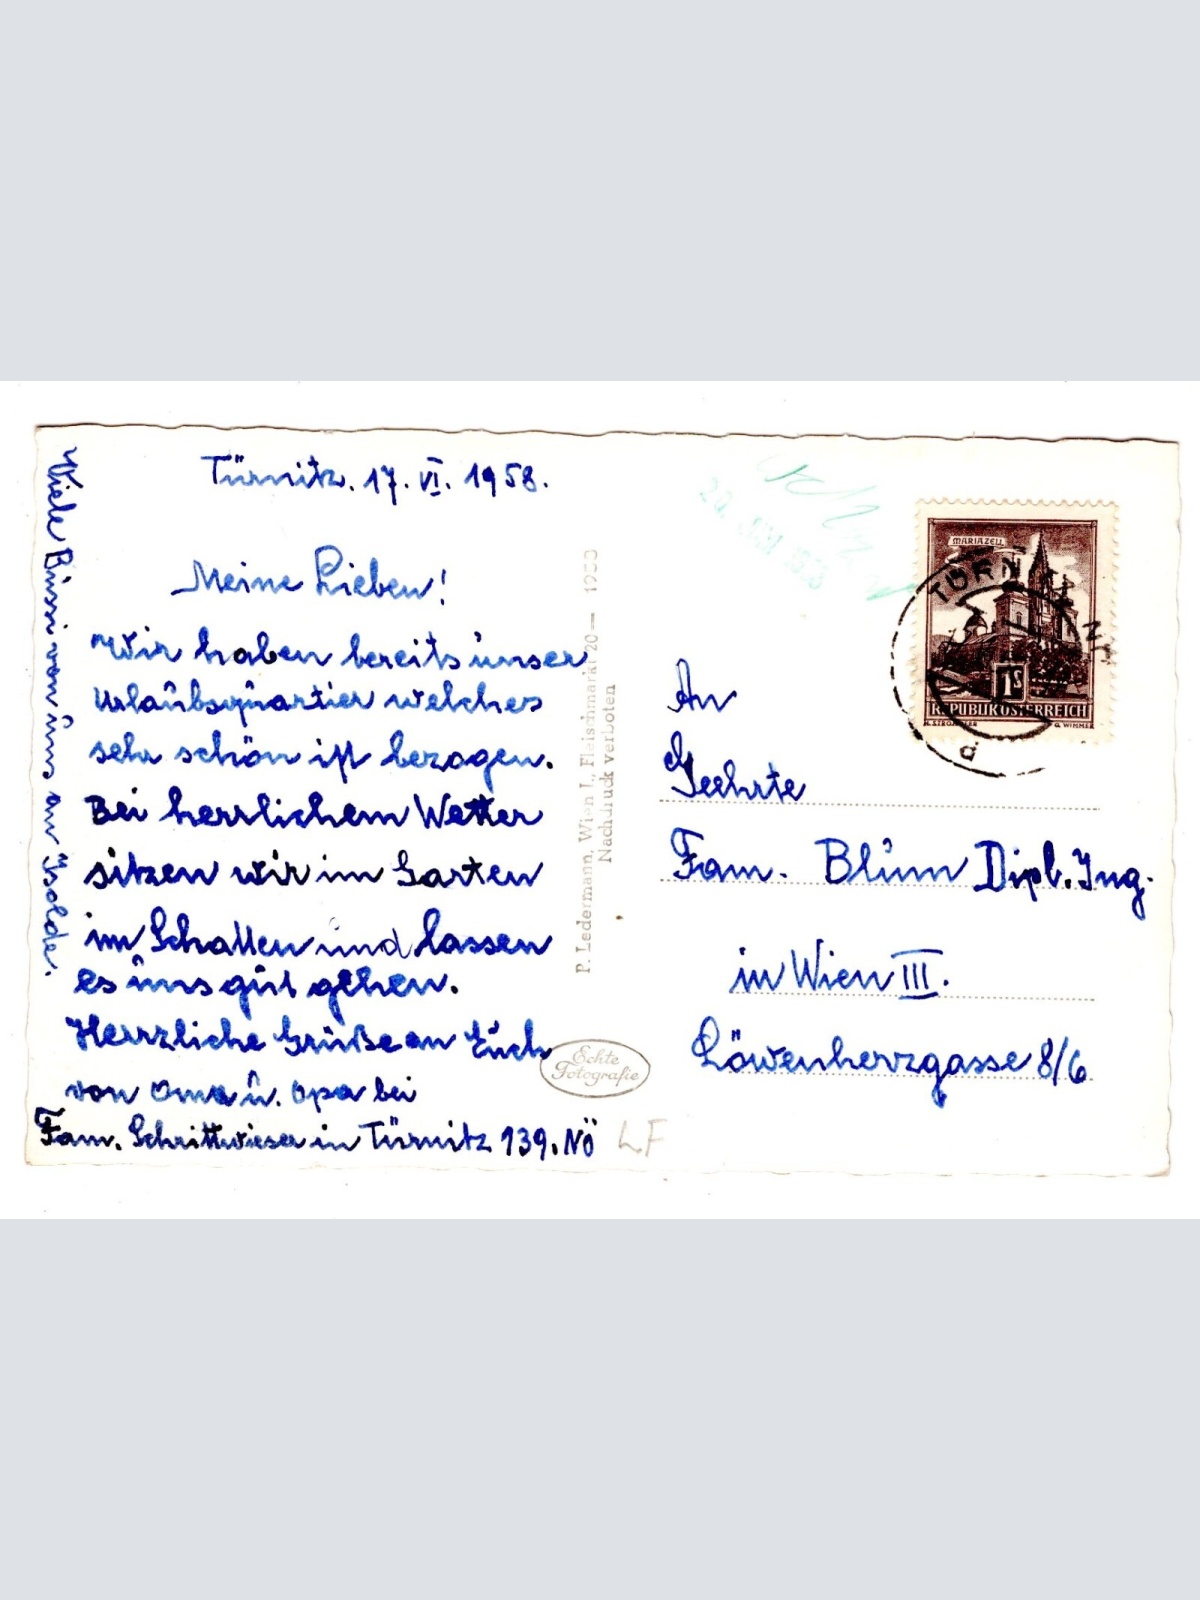 Türnitz. 17. VI. 1958.
Meine Lieben!
Wir haben bereits unser
Urlaubsquartier welches
sehr schön ist bezogen.
Bei herrlichem Wetter
sitzen wir im Garten
im Schatten und lassen
es uns gut gehen.
Herzliche Grüße an Euch
von Oma u. Opa bei
Fam. Schrittwieser in Türnitz 139. NÖ
Viele Bussi von uns an Isolde.
P. Ledermann, Wien I., Fleischmarkt 20 — 19
Nachdruck verboten
Echte
Fotografie
LF
20. JUNI 1958
MARIAZELL
1S
REPUBLIK ÖSTERREICH
G. WIMMER
TÜRNITZ
An
Geehrte
Fam. Blum Dipl. Ing.
in Wien III.
Löwenherzgasse 8/6